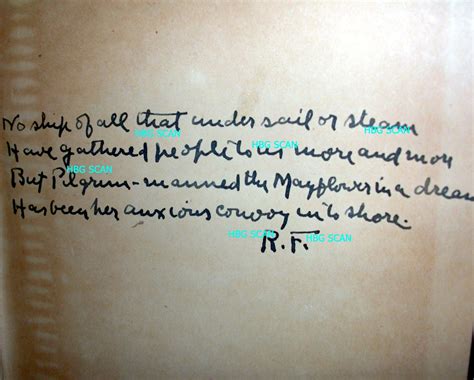 No ship of all that under sail or steam
Have gathered people to us more and more
But Pilgrim-manned the Mayflower in a dream
Has been her anxious convoy in to shore.
R.F.
HBG SCAN
HBG SCAN
HBG SCAN
HBG SCAN
HBG SCAN
HBG SCAN